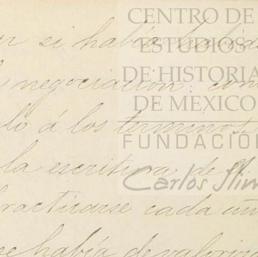 CENTRO DE
ESTUDIOS
DE HISTORIA
DE MEXICO
FUNDACIÓN
Carlos Slim
si había
negociación con
á los terminos
la escritura de
practicarse cada un
se había de valoriza